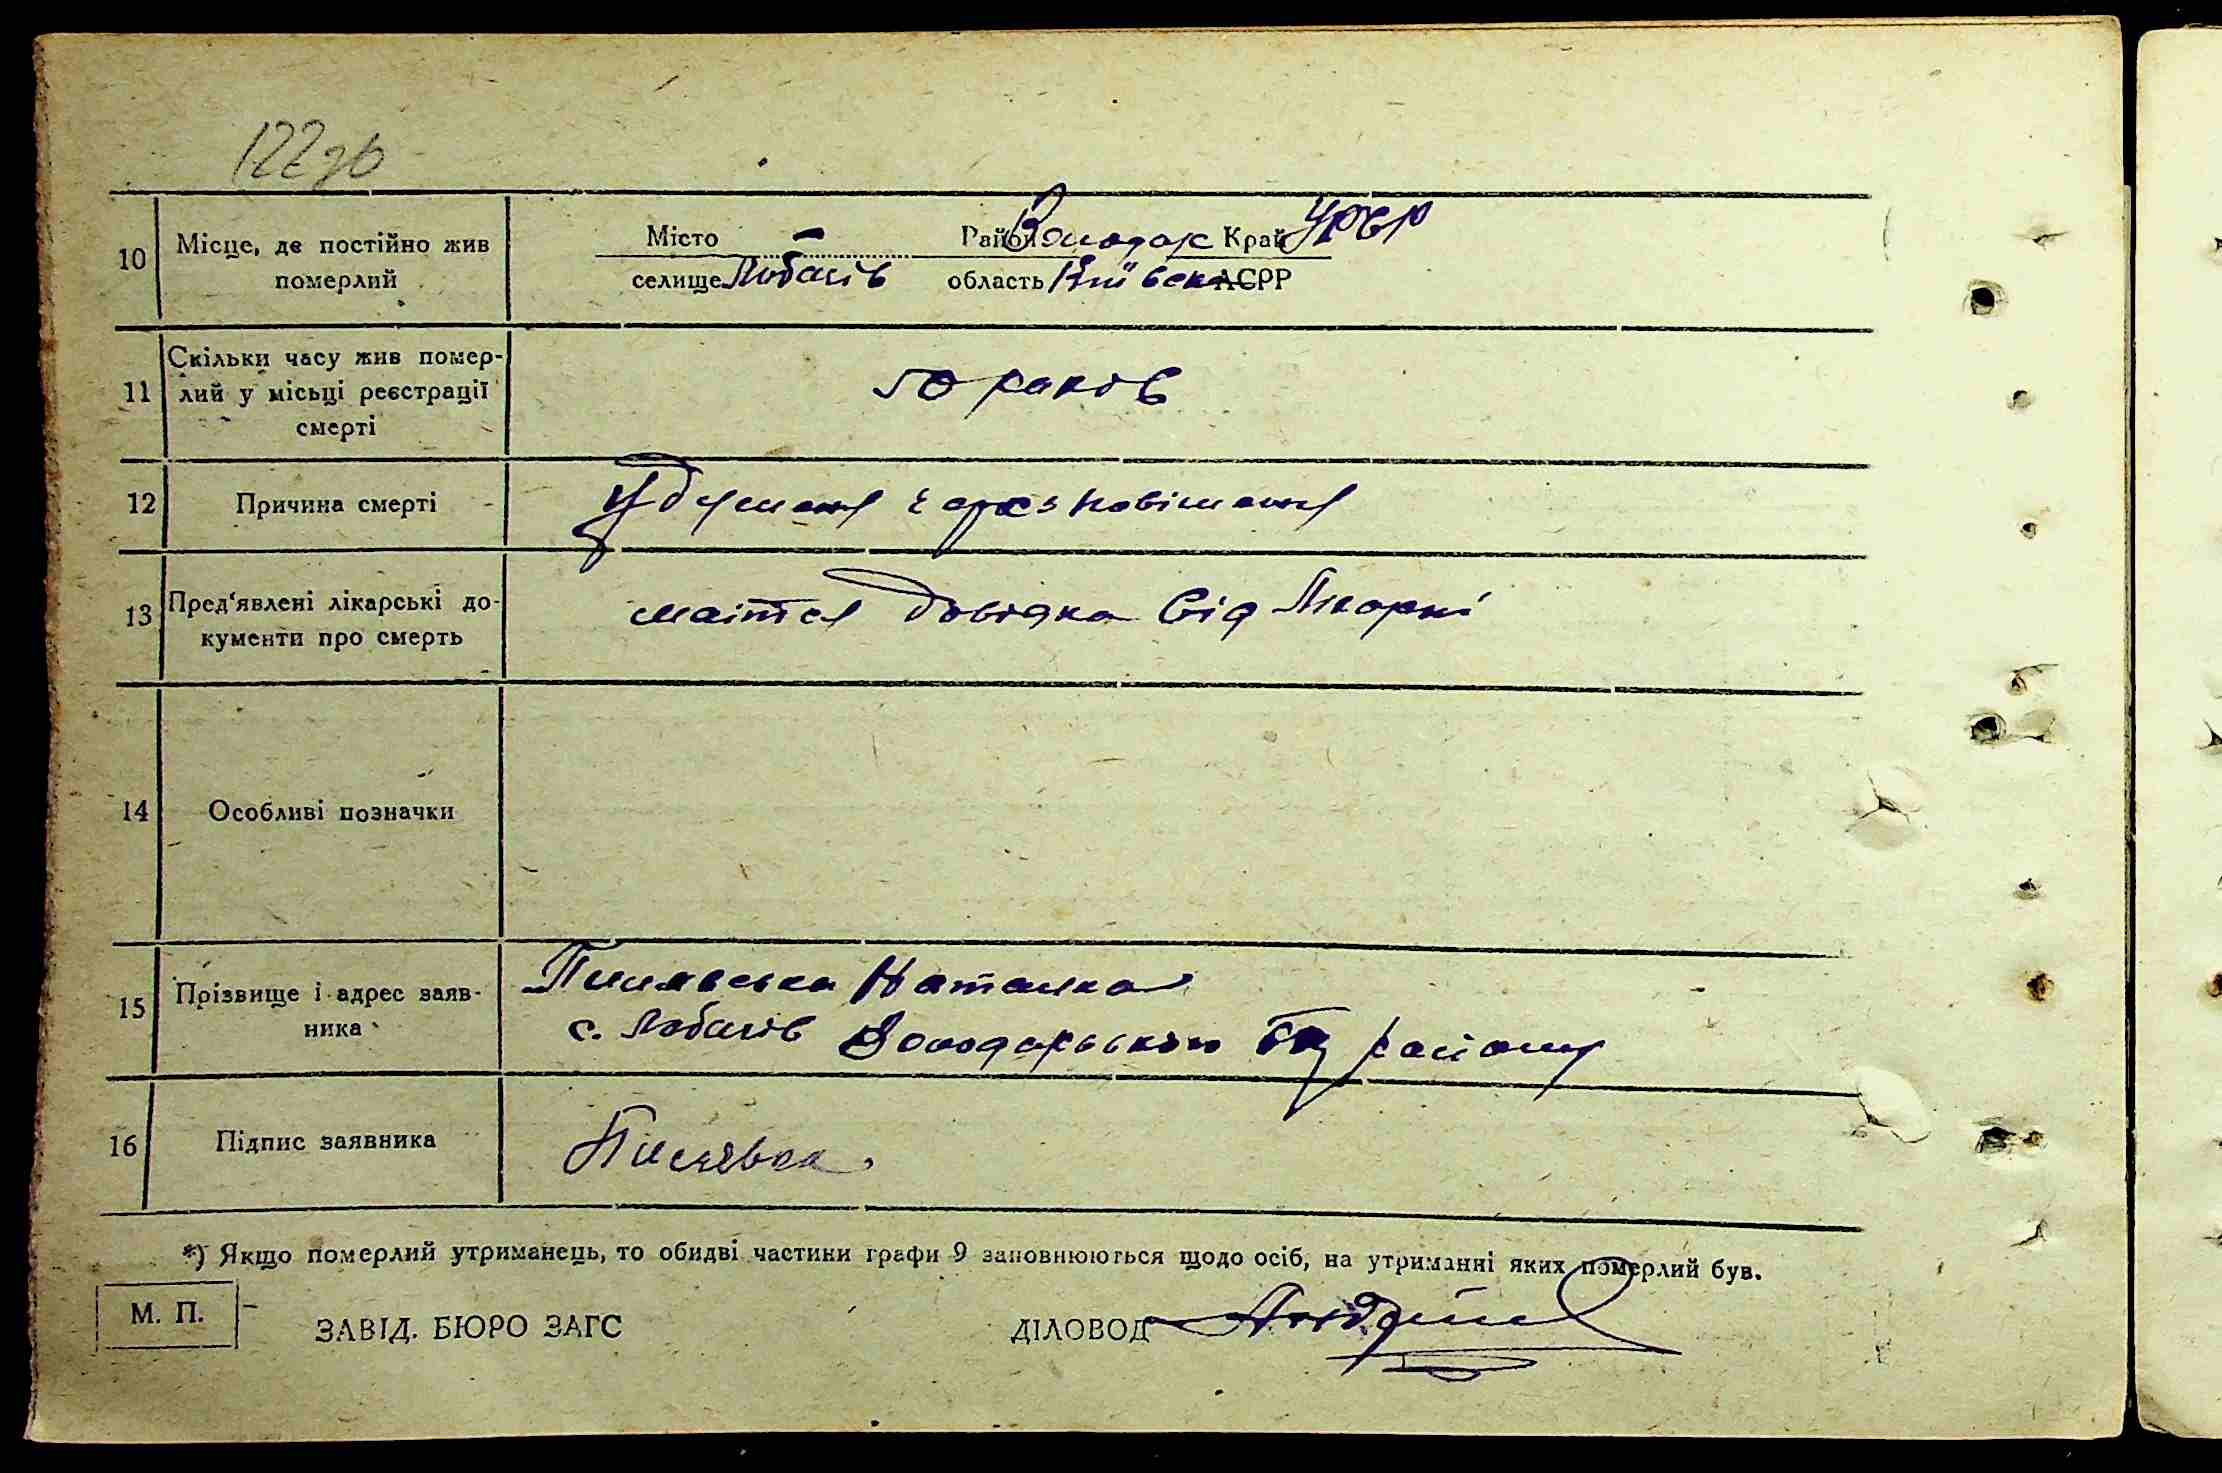 122зв
10 Місце, де постійно жив померлий
Місто — Район Володар Край УРСР
селище Лобачів область Київська АСРР
11 Скільки часу жив помер-
лий у місьці реєстрації
смерті
50 років
12 Причина смерті
Удушення через повішення
13 Пред'явлені лікарські до-
кументи про смерть
маітся довідка від лікарні
14 Особливі позначки
15 Прізвище і адрес заяв-
ника
Пилявська Наталка
с. Лобачів Володарського району
16 Підпис заявника
Пилявска
*) Якщо померлий утриманець, то обидві частини графи 9 заповнюються щодо осіб, на утриманні яких померлий був.
М. П.
ЗАВІД. БЮРО ЗАГС ДІЛОВОД